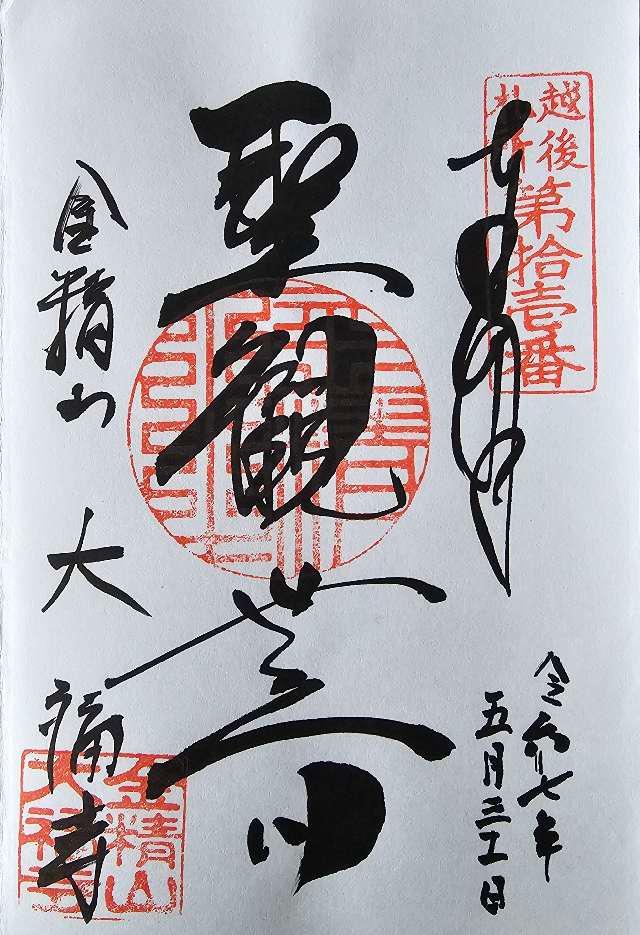 越後
札所
第拾壱番
奉拝
聖観音
令和七年
五月三十一日
金精山
大福寺
金精山
大福寺